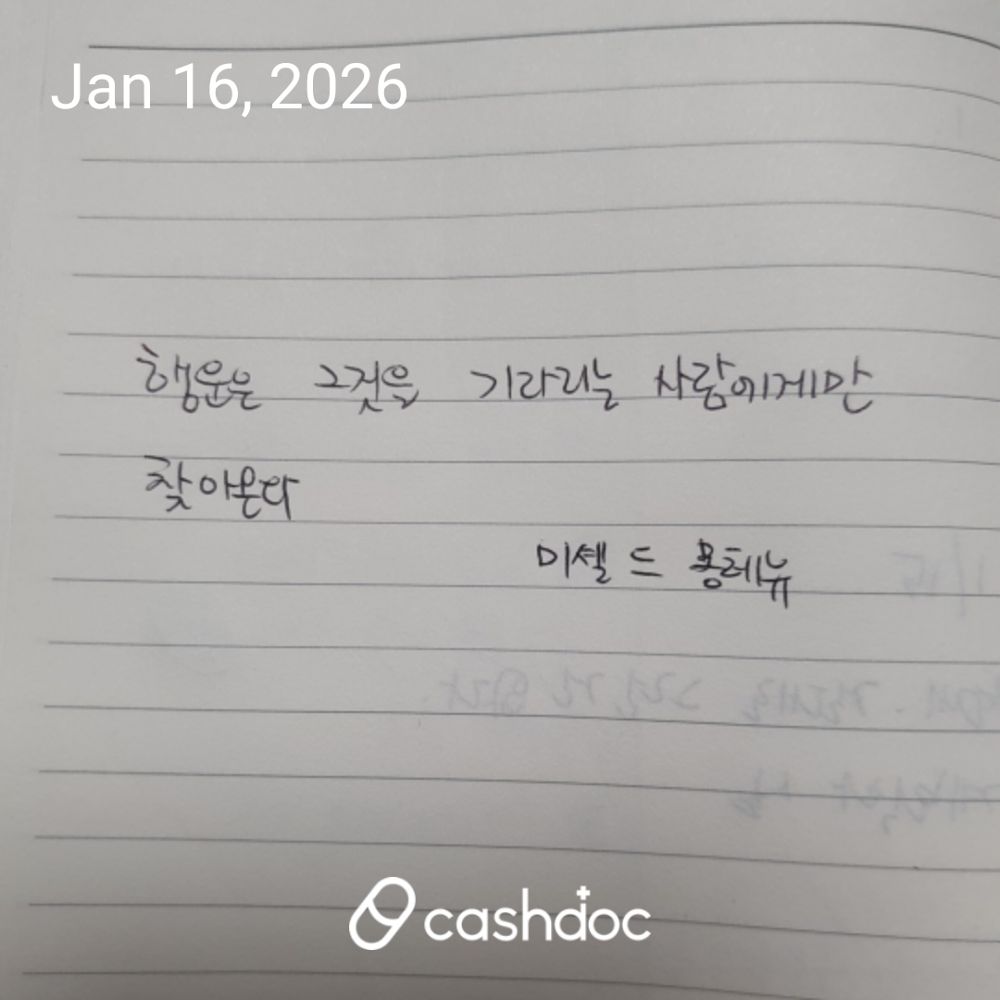 Jan 16, 2026
행운은 그것을 기라리는 사람에게만
찾아온다
미셸 드 몽테뉴
cashdoc